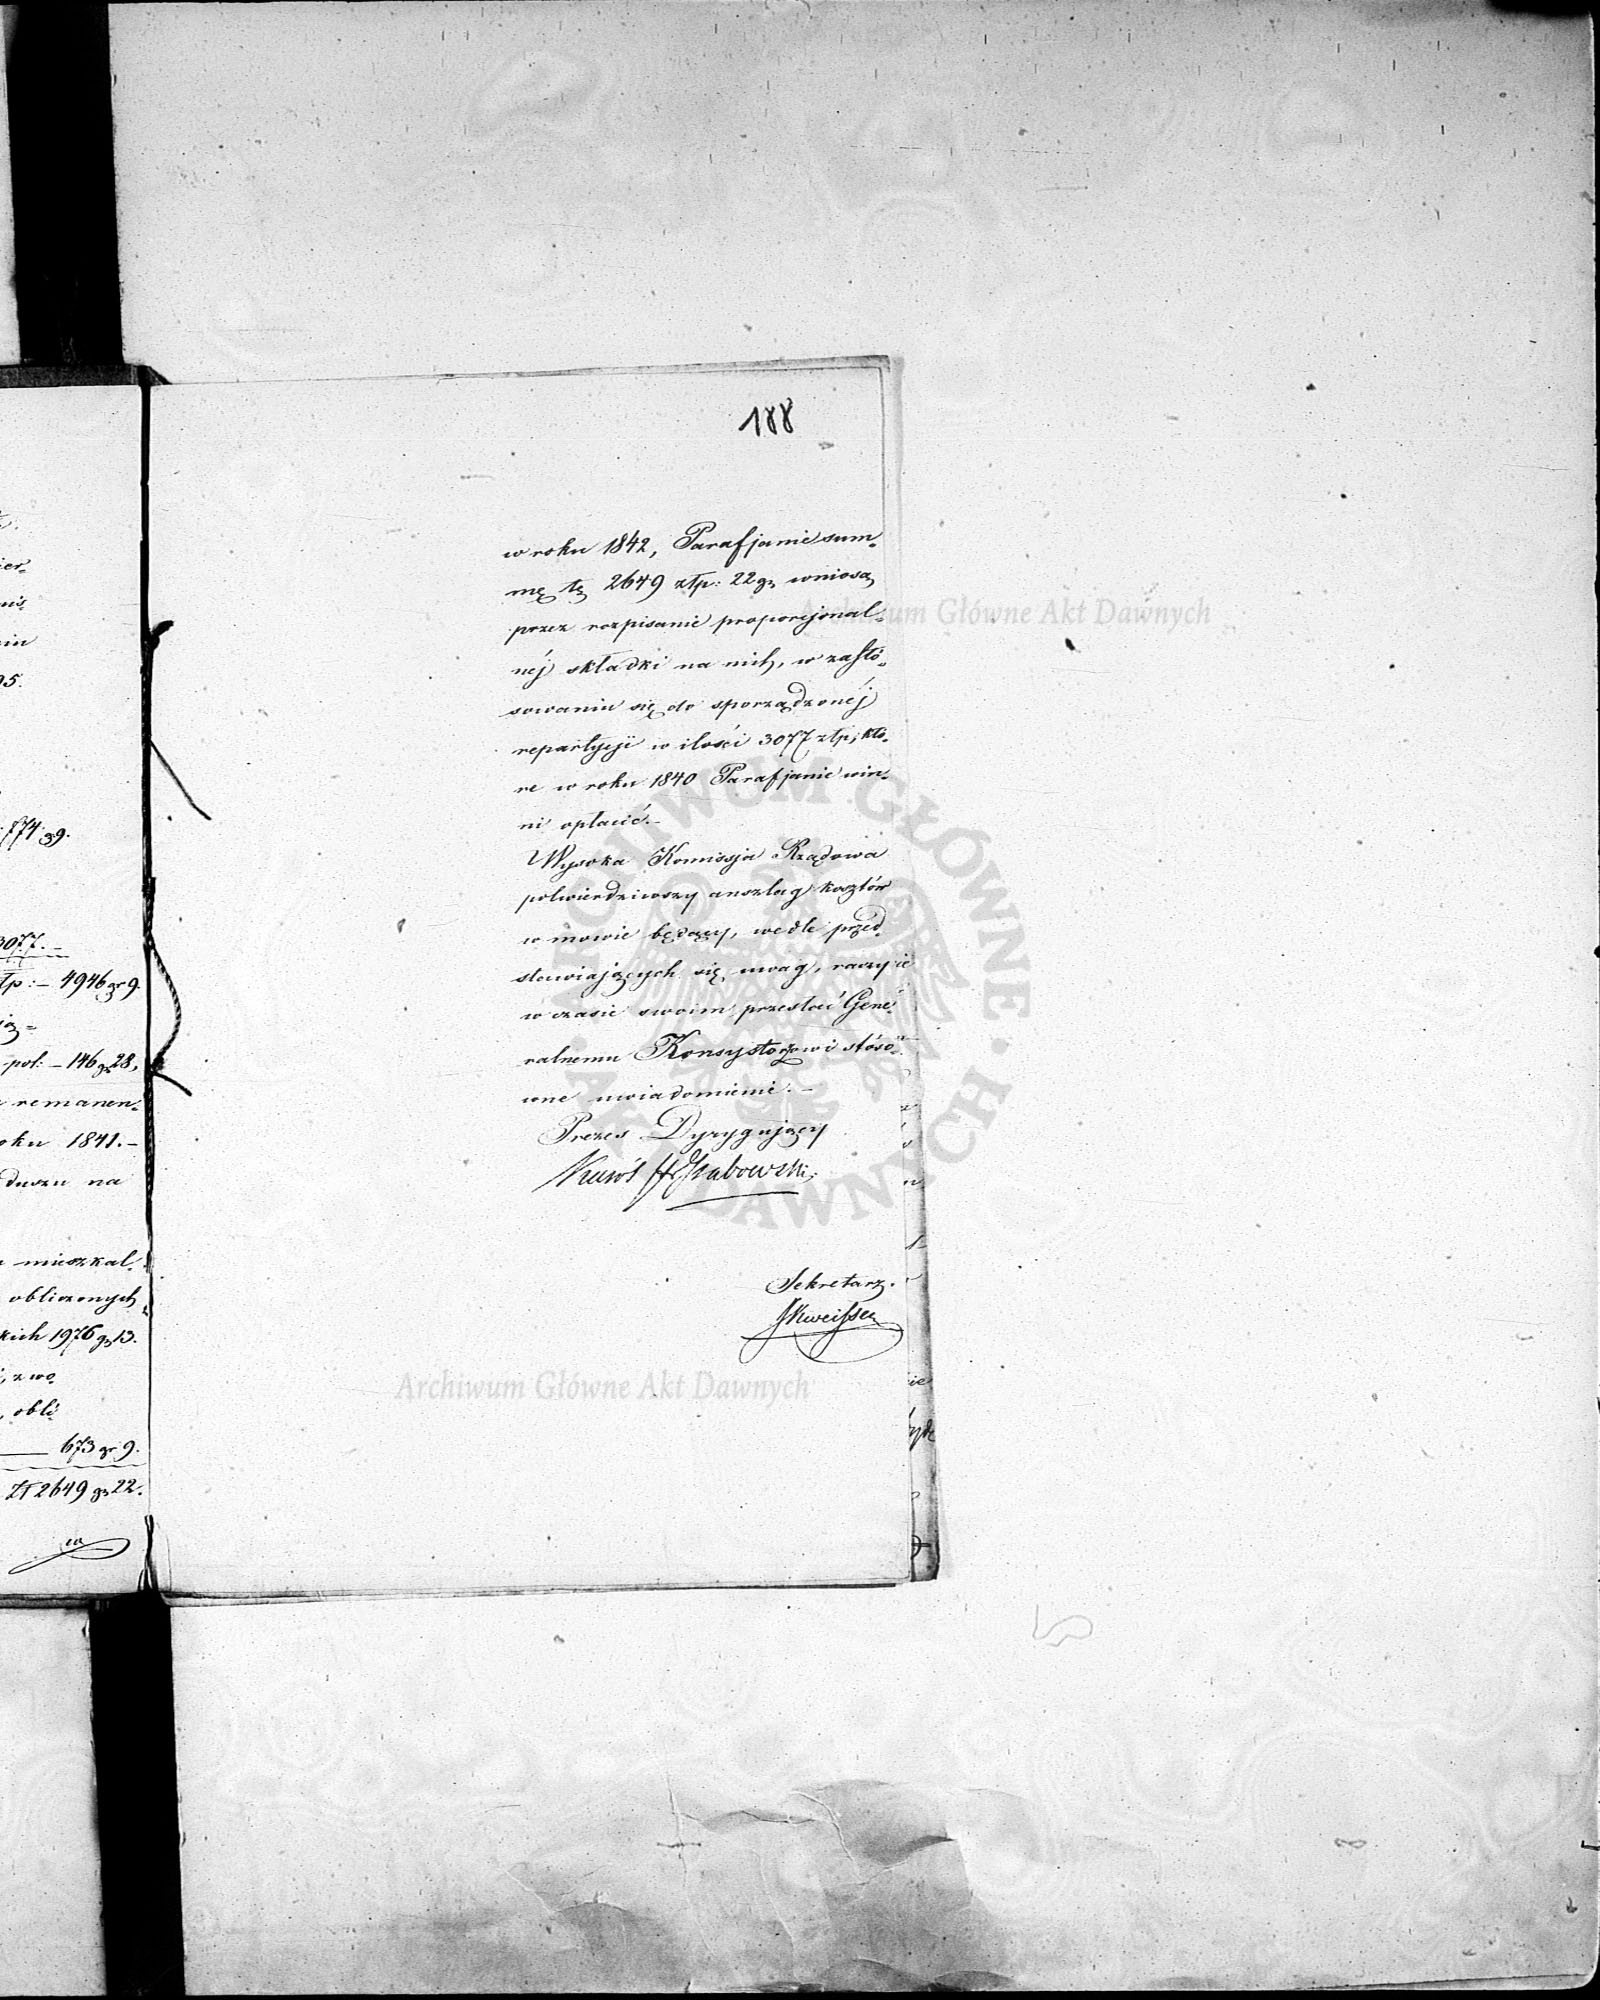 188
w roku 1842, Parafjanie sum-
mę tę 2649 złp: 22 gr wniosą
przez rozpisanie proporcjonal-
néj składki na nich, w zasto-
sowaniu się do sporządzonéj
repartycji w ilości 3077 złp, któ-
re w roku 1840 Parafjanie win-
ni opłacić.-
Wysoka Komissja Rządowa
potwierdziwszy anszlag kosztów
w mowie będący, wedle przed-
stawiających się uwag, raczy ie
w czasie swoim przesłać Gene-
ralnemu Konsystorzowi stóso-
wne uwiadomienie.-
Prezes Dyrygujący
Sekretarz.
774 g 9.
3077.-
złp: - 4946 gr 9.
pol: - 146 gr 28,
remanen-
oku 1841.-
duszu na
mieszkal-
obliczonych
kich 1976 gr 13.
, obli
673 gr 9.
Zł 2649 gr 22.
Archiwum Główne Akt Dawnych
ARCHIWUM GŁÓWNE AKT DAWNYCH
Archiwum Główne Akt Dawnych